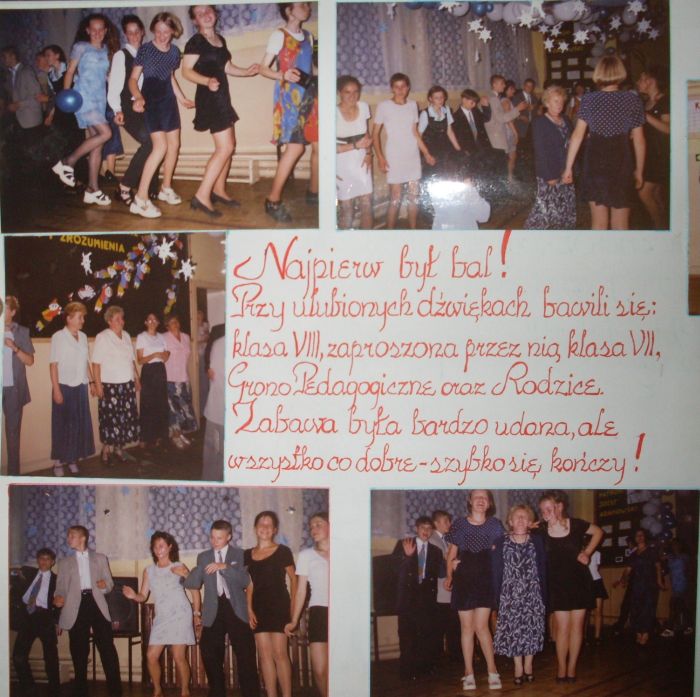 ZROZUMIENIA
Najpierw był bal!
Przy ulubionych dźwiękach bawili się:
klasa VIII, zaproszona przez nią klasa VII,
Grono Pedagogiczne oraz Rodzice.
Zabawa była bardzo udana, ale
wszystko co dobre - szybko się kończy!